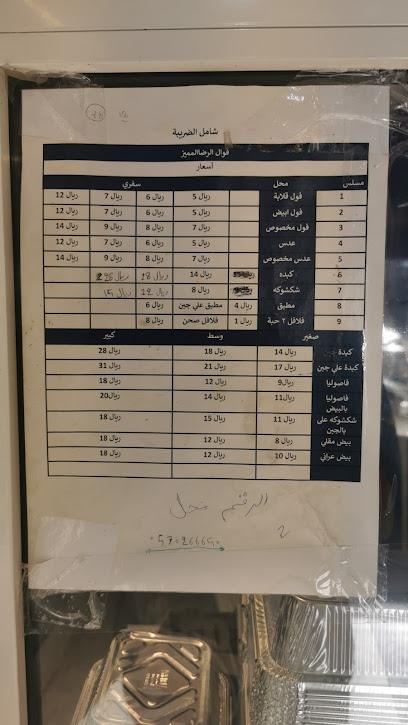 شامل الضريبة
فوال الرضا المميز
أسعار
مسلس محل سفري
1 فول قلابة 5 ريال 6 ريال 7 ريال 12 ريال
2 فول ابيض 5 ريال 6 ريال 7 ريال 12 ريال
3 فول مخصوص 7 ريال 8 ريال 9 ريال 14 ريال
4 عدس 5 ريال 6 ريال 7 ريال 12 ريال
5 عدس مخصوص 7 ريال 8 ريال 9 ريال 14 ريال
6 كبده 14 ريال 18 ريال ريال
7 شكشوكه 8 ريال 12 ريال 15 ريال
8 مطبق 4 ريال مطبق علي جبن 6 ريال
9 فلافل ٢ حبة 1 ريال فلافل صحن 8 ريال
صغير وسط كبير
كبدة جبن 14 ريال 18 ريال 28 ريال
كبدة علي جبن 17 ريال 21 ريال 31 ريال
فاصوليا 9ريال 12 ريال 18 ريال
فاصوليا بالبيض 11ريال 14 ريال 20ريال
شكشوكه على بالجبن 11 ريال 15 ريال 18 ريال
بيض مقلي 8 ريال 12 ريال 18 ريال
بيض عراني 10 ريال 12 ريال 18 ريال
الرقم محل